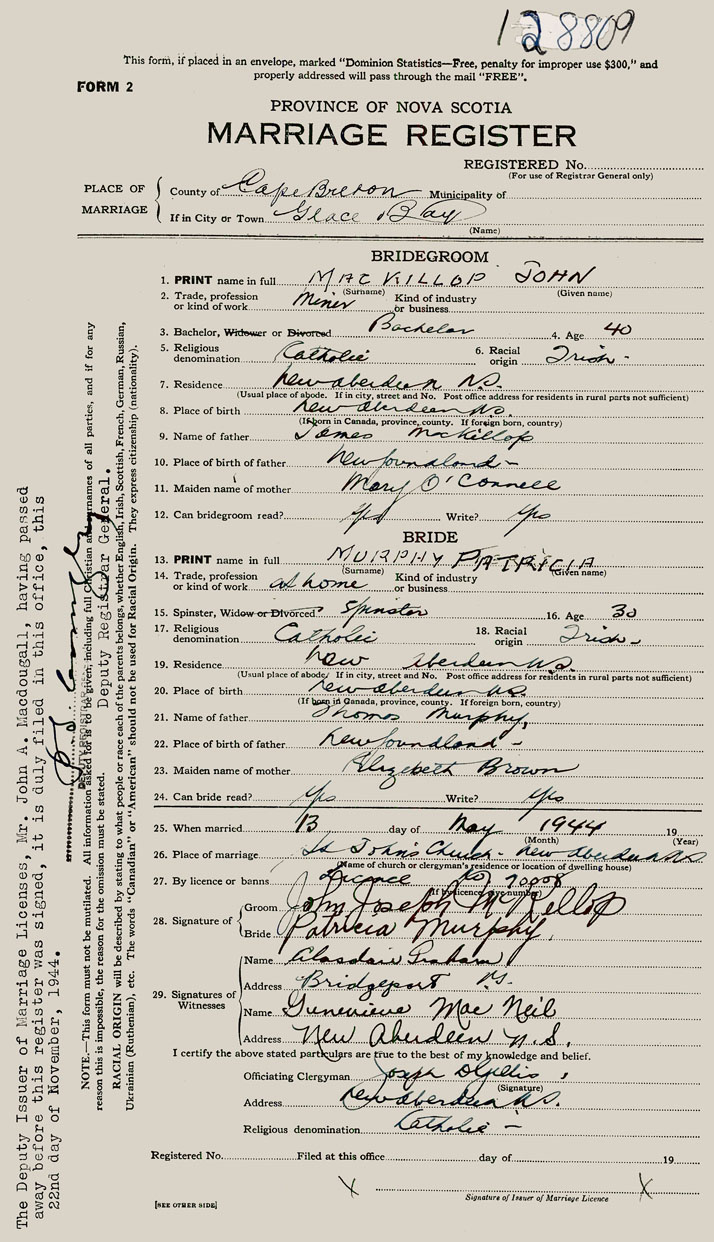 128809
This form, if placed in an envelope, marked "Dominion Statistics—Free, penalty for improper use $300," and
properly addressed will pass through the mail "FREE".
FORM 2
PROVINCE OF NOVA SCOTIA
MARRIAGE REGISTER
REGISTERED No.
(For use of Registrar General only)
PLACE OF MARRIAGE
County of Cape Breton Municipality of
If in City or Town Glace Bay
(Name)
BRIDEGROOM
1. PRINT name in full MACKILLOP JOHN
(Surname) (Given name)
2. Trade, profession or kind of work Miner Kind of industry or business
3. Bachelor, Widower or Divorced Bachelor 4. Age 40
5. Religious denomination Catholic 6. Racial origin Irish -
7. Residence New Aberdeen N.S.
(Usual place of abode. If in city, street and No. Post office address for residents in rural parts not sufficient)
8. Place of birth New Aberdeen N.S.
(If born in Canada, province, county. If foreign born, country)
9. Name of father James MacKillop
10. Place of birth of father Newfoundland -
11. Maiden name of mother Mary O'Connell
12. Can bridegroom read? Yes Write? Yes
BRIDE
13. PRINT name in full MURPHY PATRICIA
(Surname) (Given name)
14. Trade, profession or kind of work at home Kind of industry or business
15. Spinster, Widow or Divorced? Spinster 16. Age 30
17. Religious denomination Catholic 18. Racial origin Irish -
19. Residence New Aberdeen N.S.
(Usual place of abode. If in city, street and No. Post office address for residents in rural parts not sufficient)
20. Place of birth New Aberdeen N.S.
(If born in Canada, province, county. If foreign born, country)
21. Name of father Thomas Murphy,
22. Place of birth of father Newfoundland -
23. Maiden name of mother Elizabeth Brown
24. Can bride read? Yes Write? Yes
25. When married 13 day of May 1944 19
(Month) (Year)
26. Place of marriage St John's Church - New Aberdeen N.S.
(Name of church or clergyman's residence or location of dwelling house)
27. By licence or banns Licence
(If by licence give number)
28. Signature of
Groom John Joseph McKillop
Bride Patricia Murphy
29. Signatures of Witnesses
Name Alasdair Graham
Address Bridgeport N.S.
Name Genevieve Mac Neil
Address New Aberdeen N.S.
I certify the above stated particulars are true to the best of my knowledge and belief.
Officiating Clergyman Joseph D Gillis
(Signature)
Address New Aberdeen N.S.
Religious denomination Catholic -
Registered No. Filed at this office day of 19
X X
Signature of Issuer of Marriage Licence
[SEE OTHER SIDE]
The Deputy Issuer of Marriage Licenses, Mr. John A. Macdougall, having passed
away before this register was signed, it is duly filed in this office, this
22nd day of November, 1944.
Deputy Registrar General.
NOTE.—This form must not be mutilated. All information asked for is to be given, including full Christian and surnames of all parties, and if for any
reason this is impossible, the reason for the omission must be stated.
RACIAL ORIGIN will be described by stating to what people or race each of the parents belongs, whether English, Irish, Scottish, French, German, Russian,
Ukrainian (Ruthenian), etc. The words "Canadian" or "American" should not be used for Racial Origin. They express citizenship (nationality).